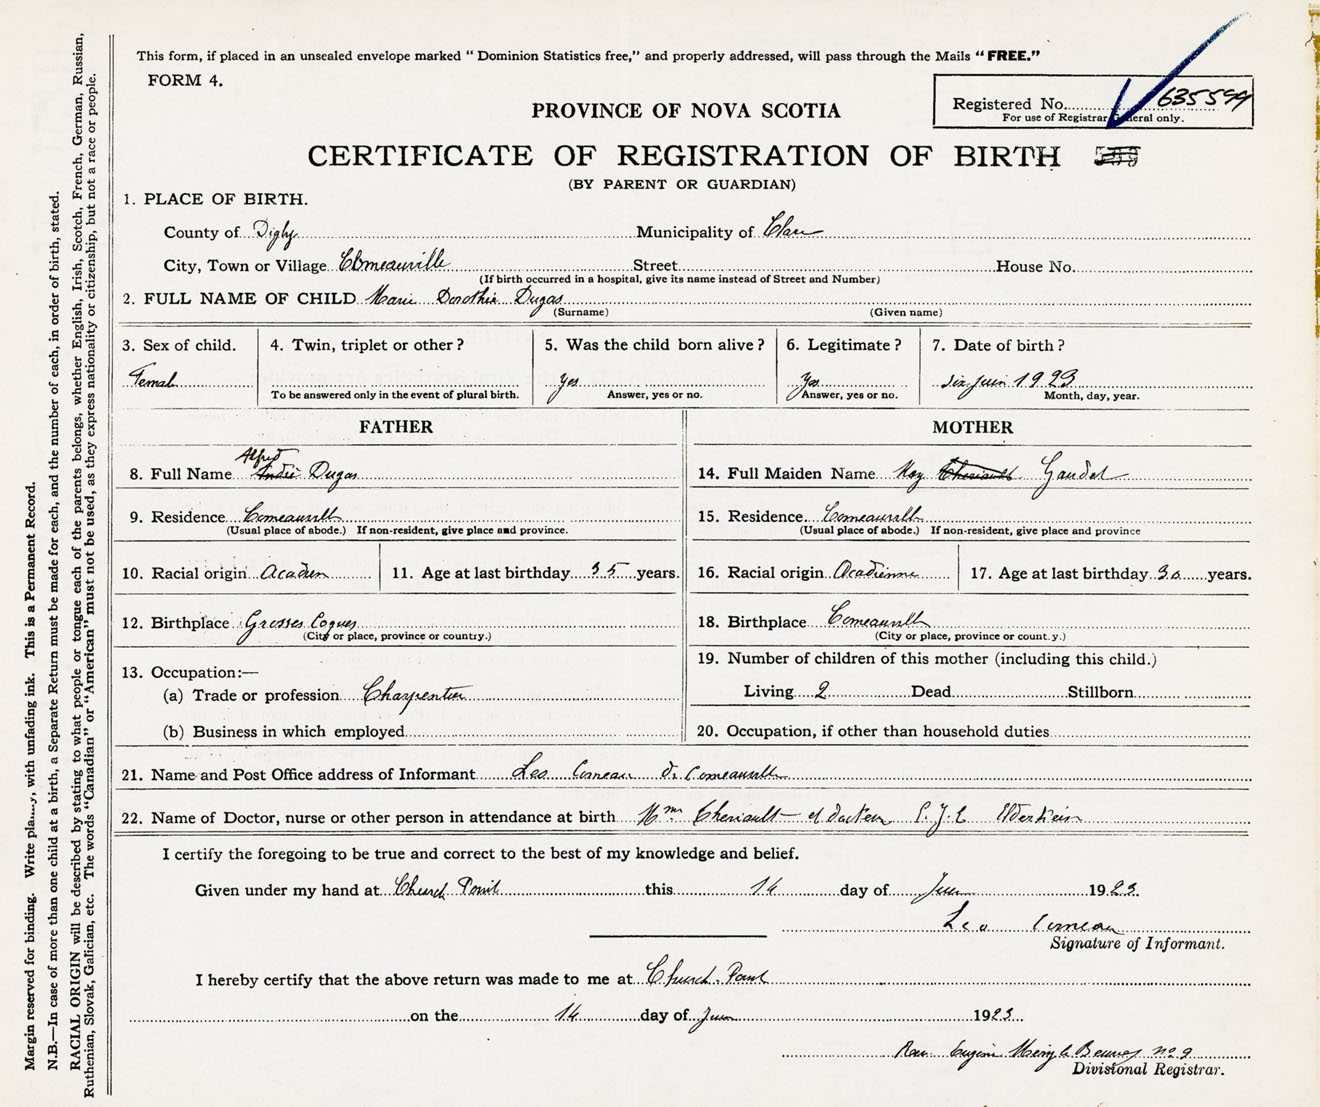 This form, if placed in an unsealed envelope marked "Dominion Statistics free," and properly addressed, will pass through the Mails "FREE."
FORM 4.
Registered No. 635599
For use of Registrar General only.
PROVINCE OF NOVA SCOTIA
CERTIFICATE OF REGISTRATION OF BIRTH
(BY PARENT OR GUARDIAN)
1. PLACE OF BIRTH.
County of Digby Municipality of Clare
City, Town or Village Comeauville Street House No.
(If birth occurred in a hospital, give its name instead of Street and Number)
2. FULL NAME OF CHILD Marie Dorothie Dugas
(Surname) (Given name)
3. Sex of child. 4. Twin, triplet or other? 5. Was the child born alive? 6. Legitimate? 7. Date of birth?
Femal yes Yes six juin 1923
To be answered only in the event of plural birth. Answer, yes or no. Answer, yes or no. Month, day, year.
FATHER MOTHER
Alfred
8. Full Name Dugas 14. Full Maiden Name May Theriault Gaudet
9. Residence Comeauville 15. Residence Comeauville
(Usual place of abode.) If non-resident, give place and province. (Usual place of abode.) If non-resident, give place and province
10. Racial origin Acadien 11. Age at last birthday 35 years. 16. Racial origin Acadienne 17. Age at last birthday 30 years.
12. Birthplace Grosses Coques 18. Birthplace Comeauville
(City or place, province or country.) (City or place, province or count.y.)
13. Occupation:— 19. Number of children of this mother (including this child.)
(a) Trade or profession Charpentier Living 2 Dead Stillborn
(b) Business in which employed 20. Occupation, if other than household duties
21. Name and Post Office address of Informant Leo Comeau de Comeauville
22. Name of Doctor, nurse or other person in attendance at birth Mme Theriault et docteur
I certify the foregoing to be true and correct to the best of my knowledge and belief.
Given under my hand at Church Point this 14 day of Juin 1923.
Leo Comeau
Signature of Informant.
I hereby certify that the above return was made to me at Church Point
on the 14 day of Juin 1923
Rev. Eugene no 9
Divisional Registrar.
Margin reserved for binding. Write pla....y, with unfading ink. This is a Permanent Record.
N.B.—In case of more than one child at a birth, a Separate Return must be made for each, and the number of each, in order of birth, stated.
RACIAL ORIGIN will be described by stating to what people or tongue each of the parents belongs, whether English, Irish, Scotch, French, German, Russian,
Ruthenian, Slovak, Galician, etc. The words "Canadian" or "American" must not be used, as they express nationality or citizenship, but not a race or people.